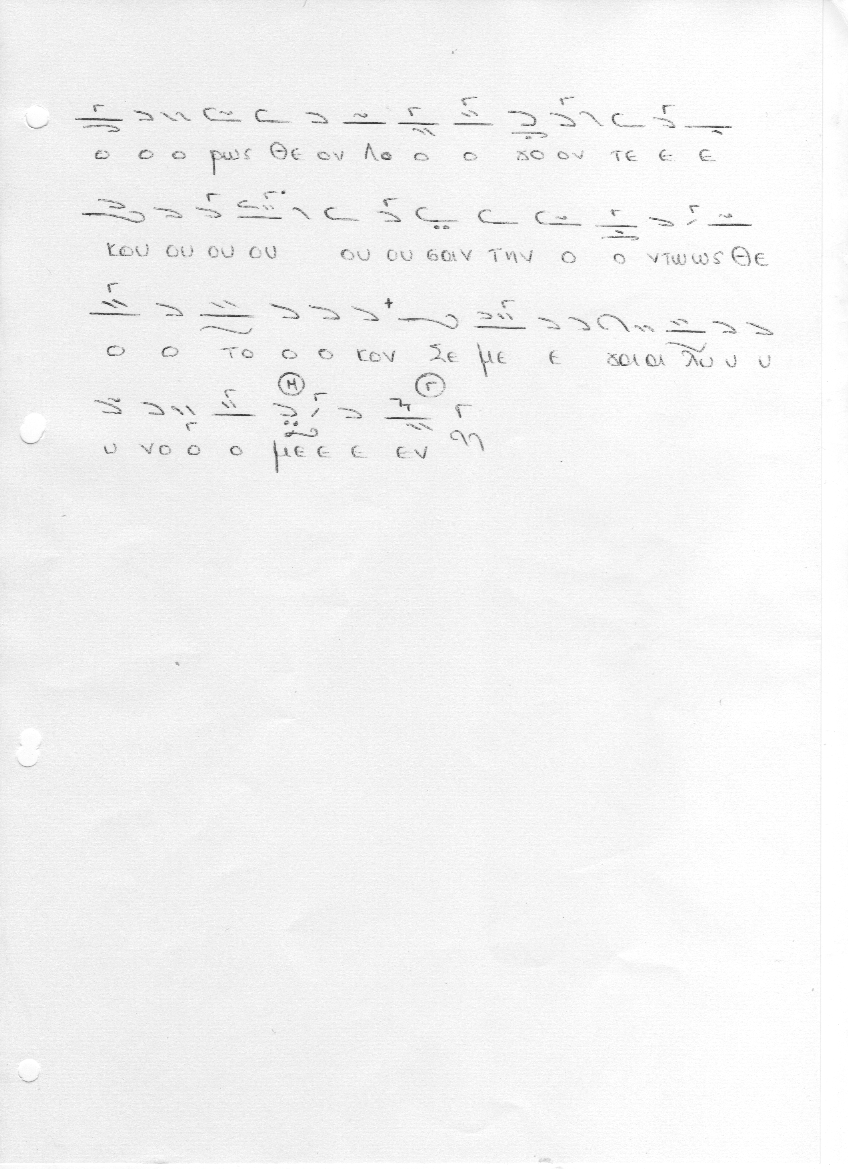 ο ο ο ρως Θε ον Λο ο ο γο ον τε ε ε
κου ου ου ου ου ου σαν την ο ο ντωως Θε
ο ο το ο ο κον Σε με ε γα λυ υ υ
υ νο ο ο με ε ε εν